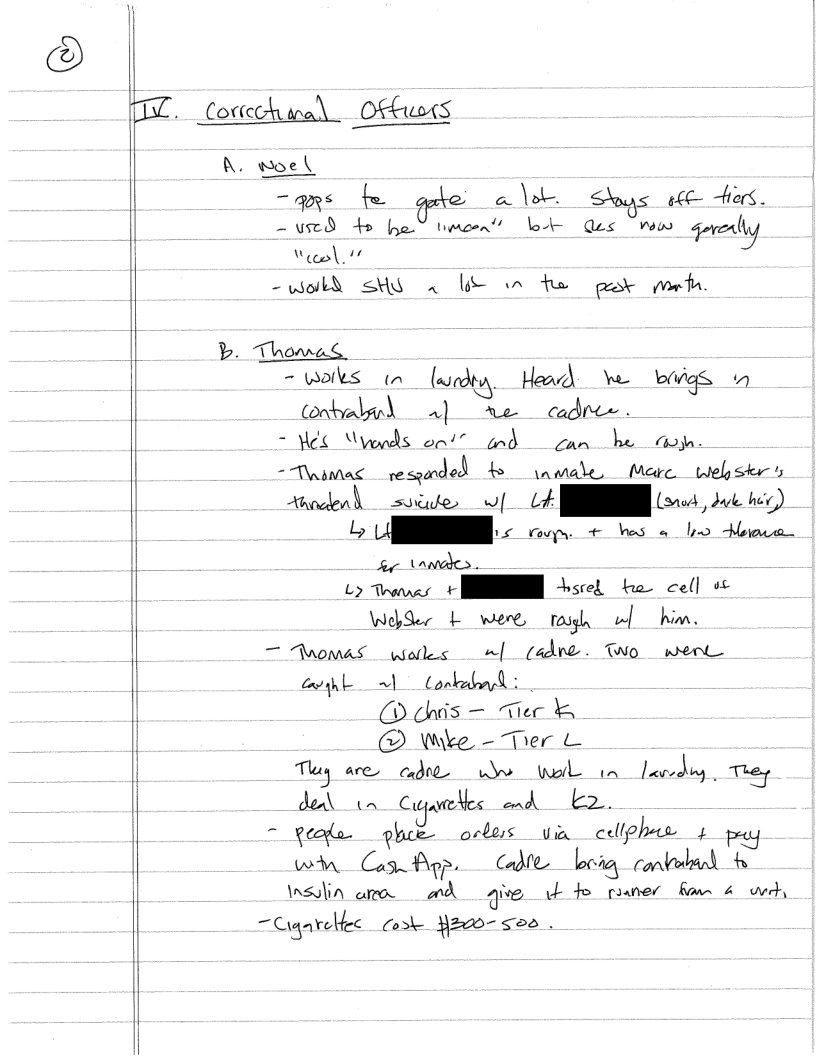 2
IV. Correctional Officers
A. Noel
- pops the gate a lot. Stays off tiers.
- used to be "mean" but is now generally
"cool."
- worked SHU a lot in the past month.
B. Thomas
- works in laundry. Heard he brings in
contraband w/ the cadre.
- He's "hands on" and can be rough.
- Thomas responded to inmate Marc Webster's
threatened suicide w/ Lt. (short, dark hair)
↳ Lt is rough. + has a low tolerance
for inmates.
↳ Thomas + tossed the cell of
Webster + were rough w/ him.
- Thomas works w/ cadre. Two were
caught w/ contraband:
① Chris - Tier K
② Mike - Tier L
They are cadre who work in laundry. They
deal in Cigarrettes and K2.
- people place orders via cellphone + pay
with Cash App. Cadre bring contraband to
Insulin area and give it to runner from a unit.
- Cigarettes cost $300-500.